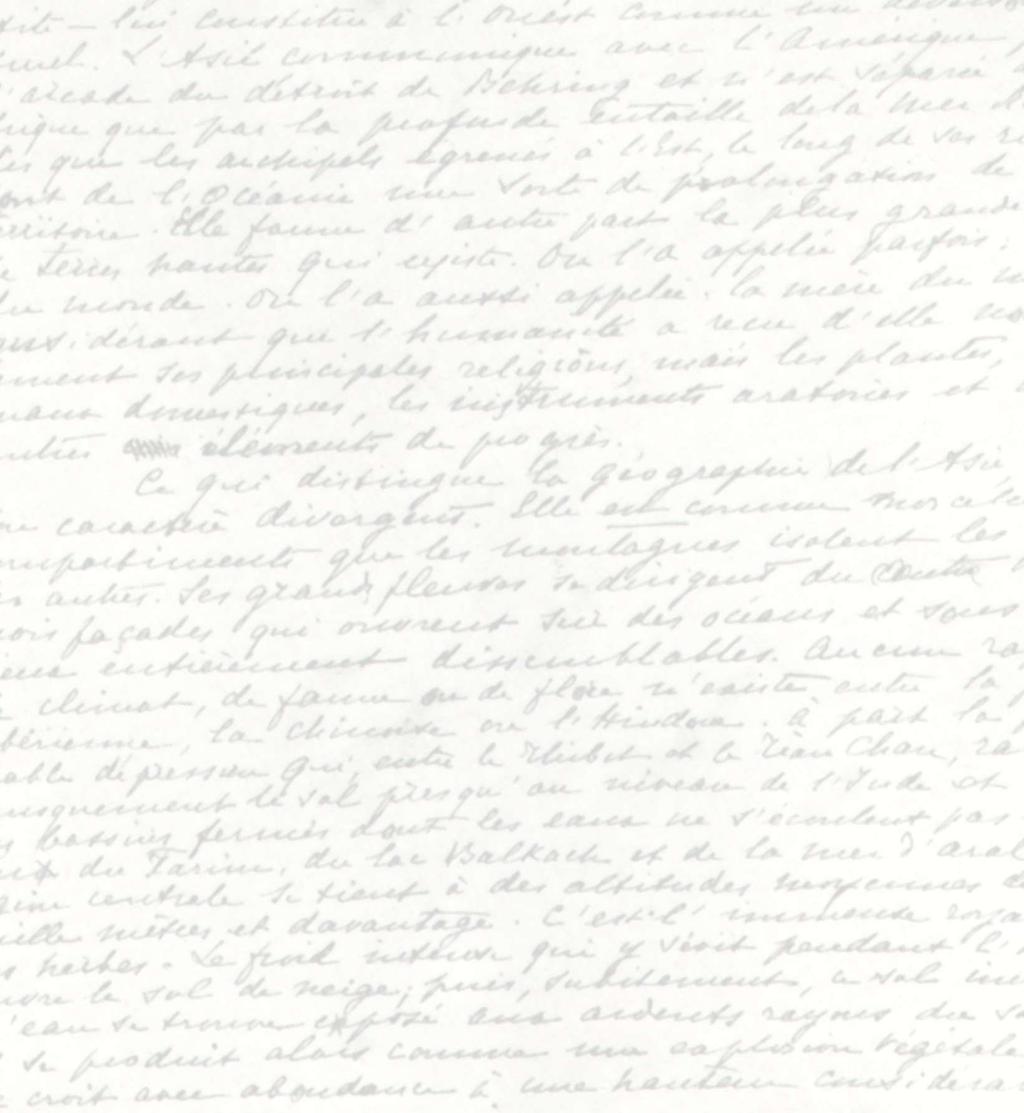 lui constitue à l'ouest comme un
L'Asie communique avec l'Amérique
du détroit de Béhring et n'est séparée
que par la profonde entaille de la mer
que les archipels égrenés à l'Est, le long de ses
de l'Océanie une sorte de prolongation de
Elle forme d'autre part la plus grande
terres hautes qui existe. On l'a appelée parfois :
du monde. On l'a aussi appelée : la mère du
considérant que l'humanité a reçu d'elle
ses principales religions, mais les plantes,
domestiques, les instruments aratoires et
éléments de progrès.
Ce qui distingue la géographie de l'Asie
caractère divergent. Elle est comme
compartiments que les montagnes isolent les
autres. Ses grands fleuves se dirigent du centre
façades qui ouvrent sur des océans et sous
entièrement dissemblables. Aucun
climat, de faune ou de flore n'existe entre la
la chinoise ou l'Hindoue. à part la
dépression qui, entre le Thibet et le Tian Chan,
le sol presqu'au niveau de l'Inde et
bassins fermés dont les eaux ne s'écoulent pas
du Tarim, du lac Balkach et de la mer d'aral
centrale se tient à des altitudes moyennes
mètres et davantage. C'est l'immense
herbes. Le froid intense qui y sévit pendant
le sol de neige ; puis, subitement, ce sol
l'eau se trouve exposé aux ardents rayons du
se produit alors comme une explosion végétale
croit avec abondance à une hauteur